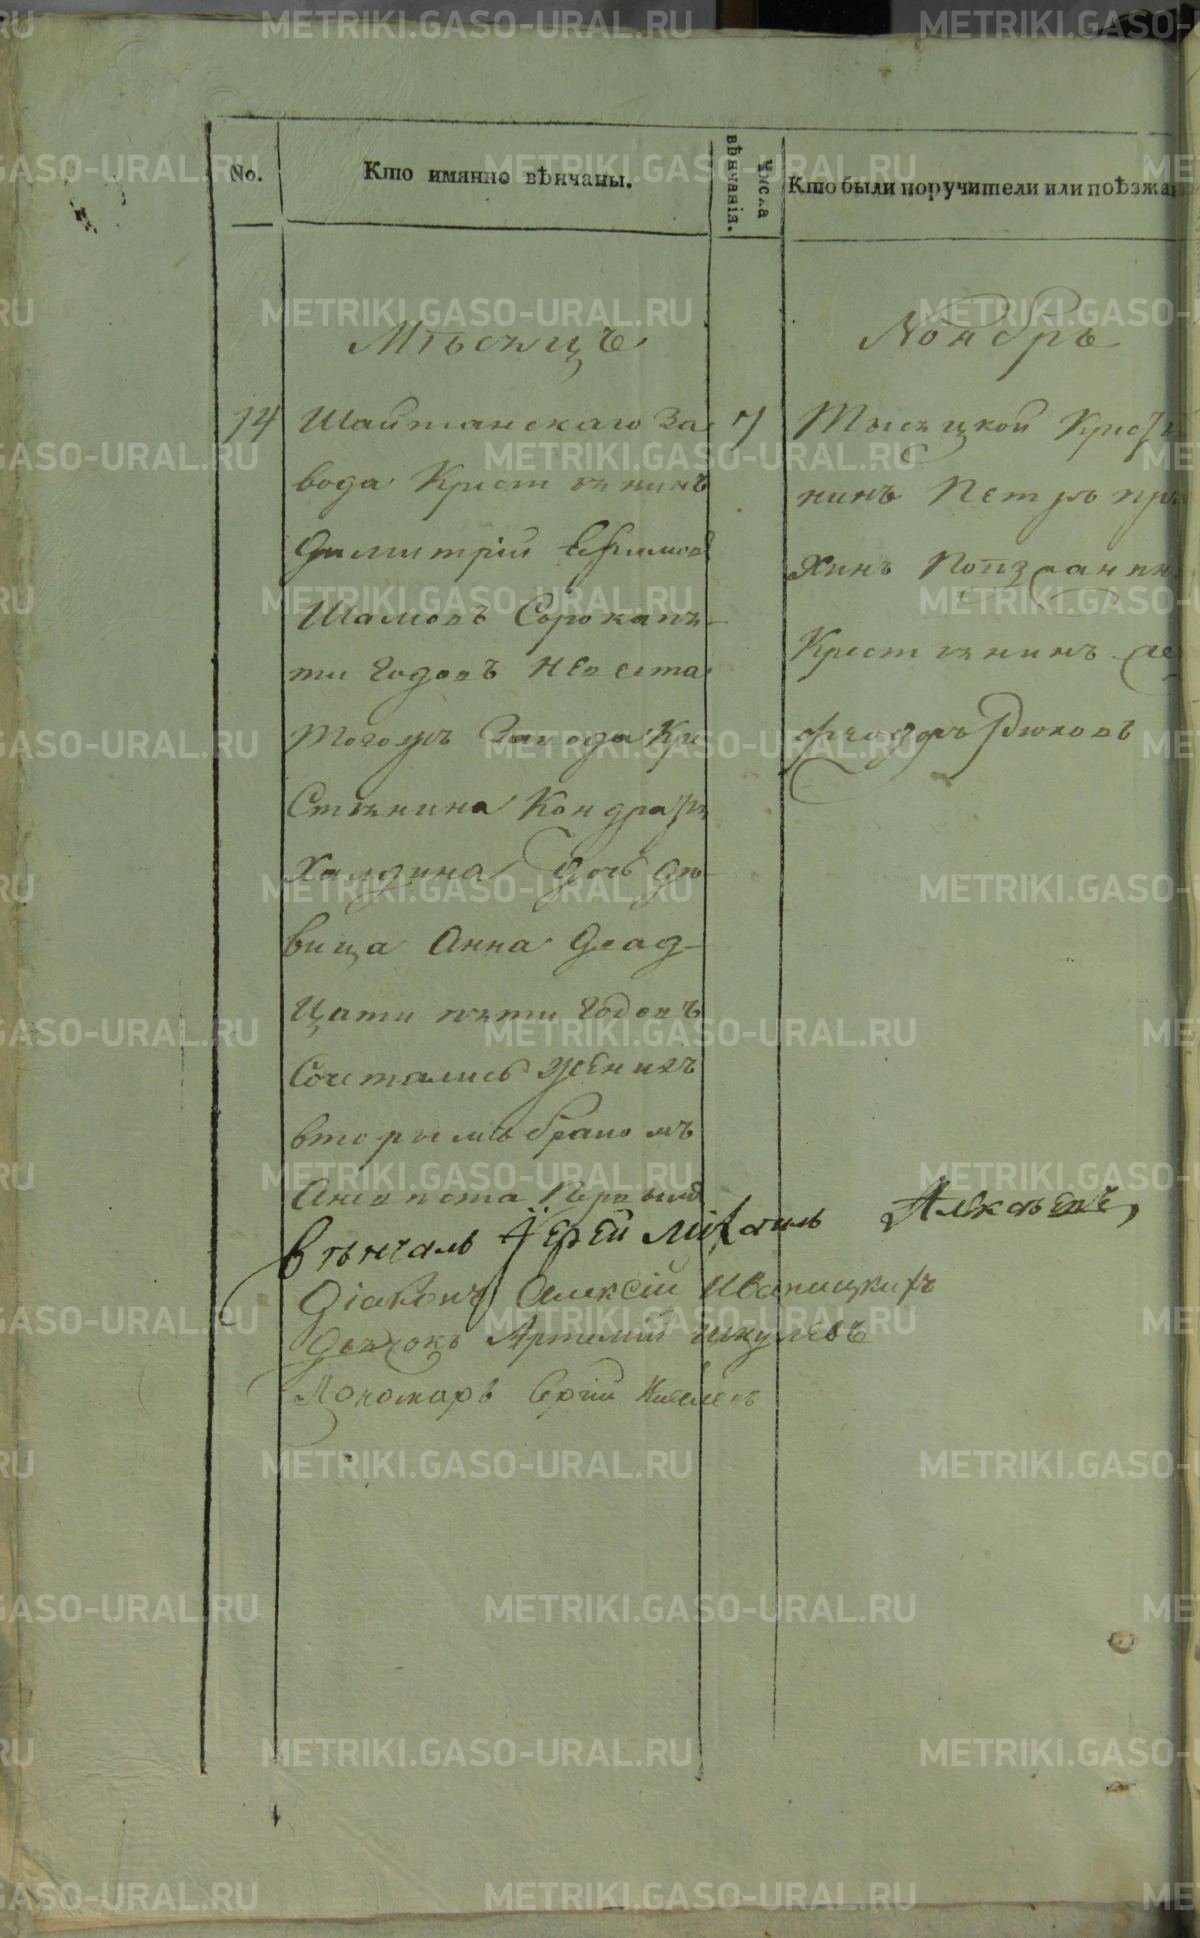 No.
Кто имянно вѣнчаны.
Числа вѣнчанія.
Кто были поручители или поѣзжа
Мѣсяцъ
Ноябрь
14
Шайтанскаго За
вода Крестьянинъ
Димитрій Ефимовъ
Шамовъ Сорокапя-
ти годовъ невеста
тогожъ Завода Кре
Стьянина Кондратья
Халдина дочь дѣ-
вица Анна двад-
цати пяти годовъ
Сочетались женихъ
вторымъ бракомъ
Аневѣста Первымъ
7
Тысяцкой Крест
нинъ Петръ
хинъ Поѣзжанин
Крестьянинъ
Феодоръ Рюковъ
Вѣнчалъ Іерей Михаилъ Алексѣевъ
Діаконъ Алексій Иваницкихъ
Дьячокъ Артемий Шкулевъ
Пономарь
METRIKI.GASO-URAL.RU